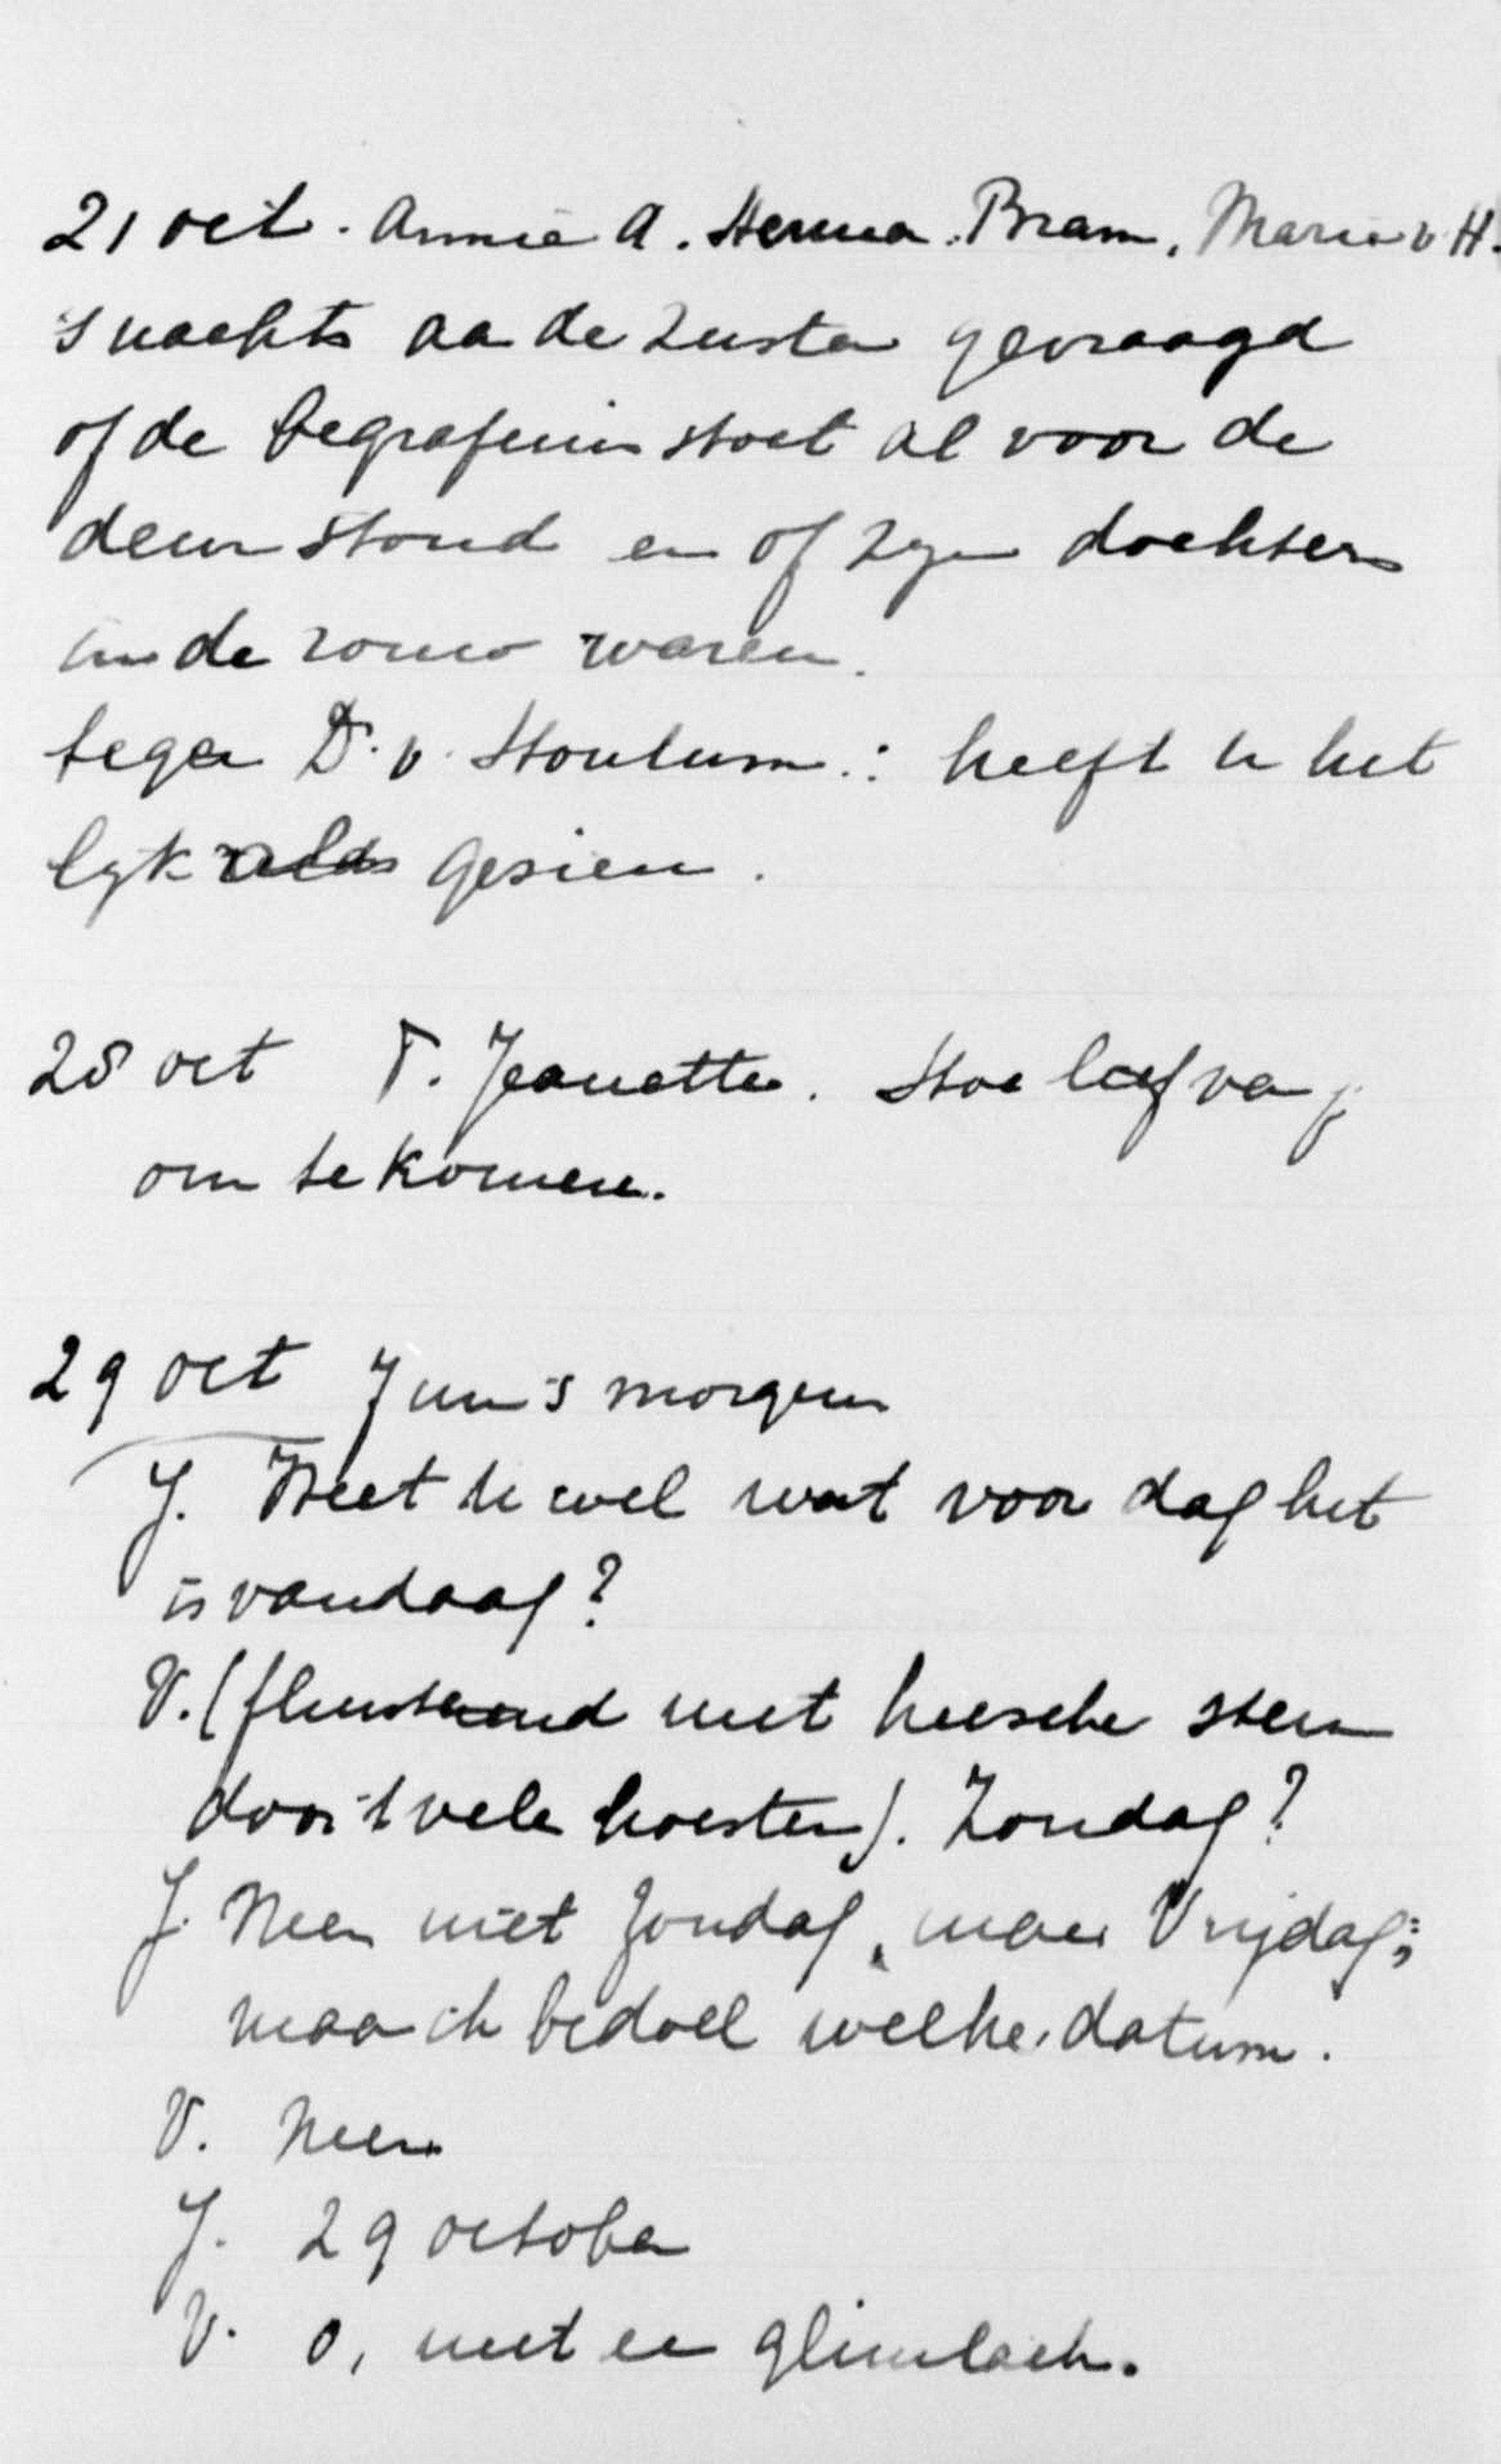 21 oct. Annie A. Herma. Bram. Marie v H.
's nachts aan de zuster gevraagd
of de begrafenis stoet al voor de
deur stond en of zyn dochters
in de rouw waren.
tegen D. v. Houtum: heeft u het
lyk gezien.
28 oct T. Jeanette. Hoe lief van je
om te komen.
29 oct 7 uur 's morgens
J. Weet u wel wat voor dag het
is vandaag?
V. (fluisterend met heesche stem
door 't vele hoesten). Zondag?
J. Neen niet Zondag, maar Vrijdag;
maar ik bedoel welke datum.
V. Neen
J. 29 october
V. O, met een glimlach.